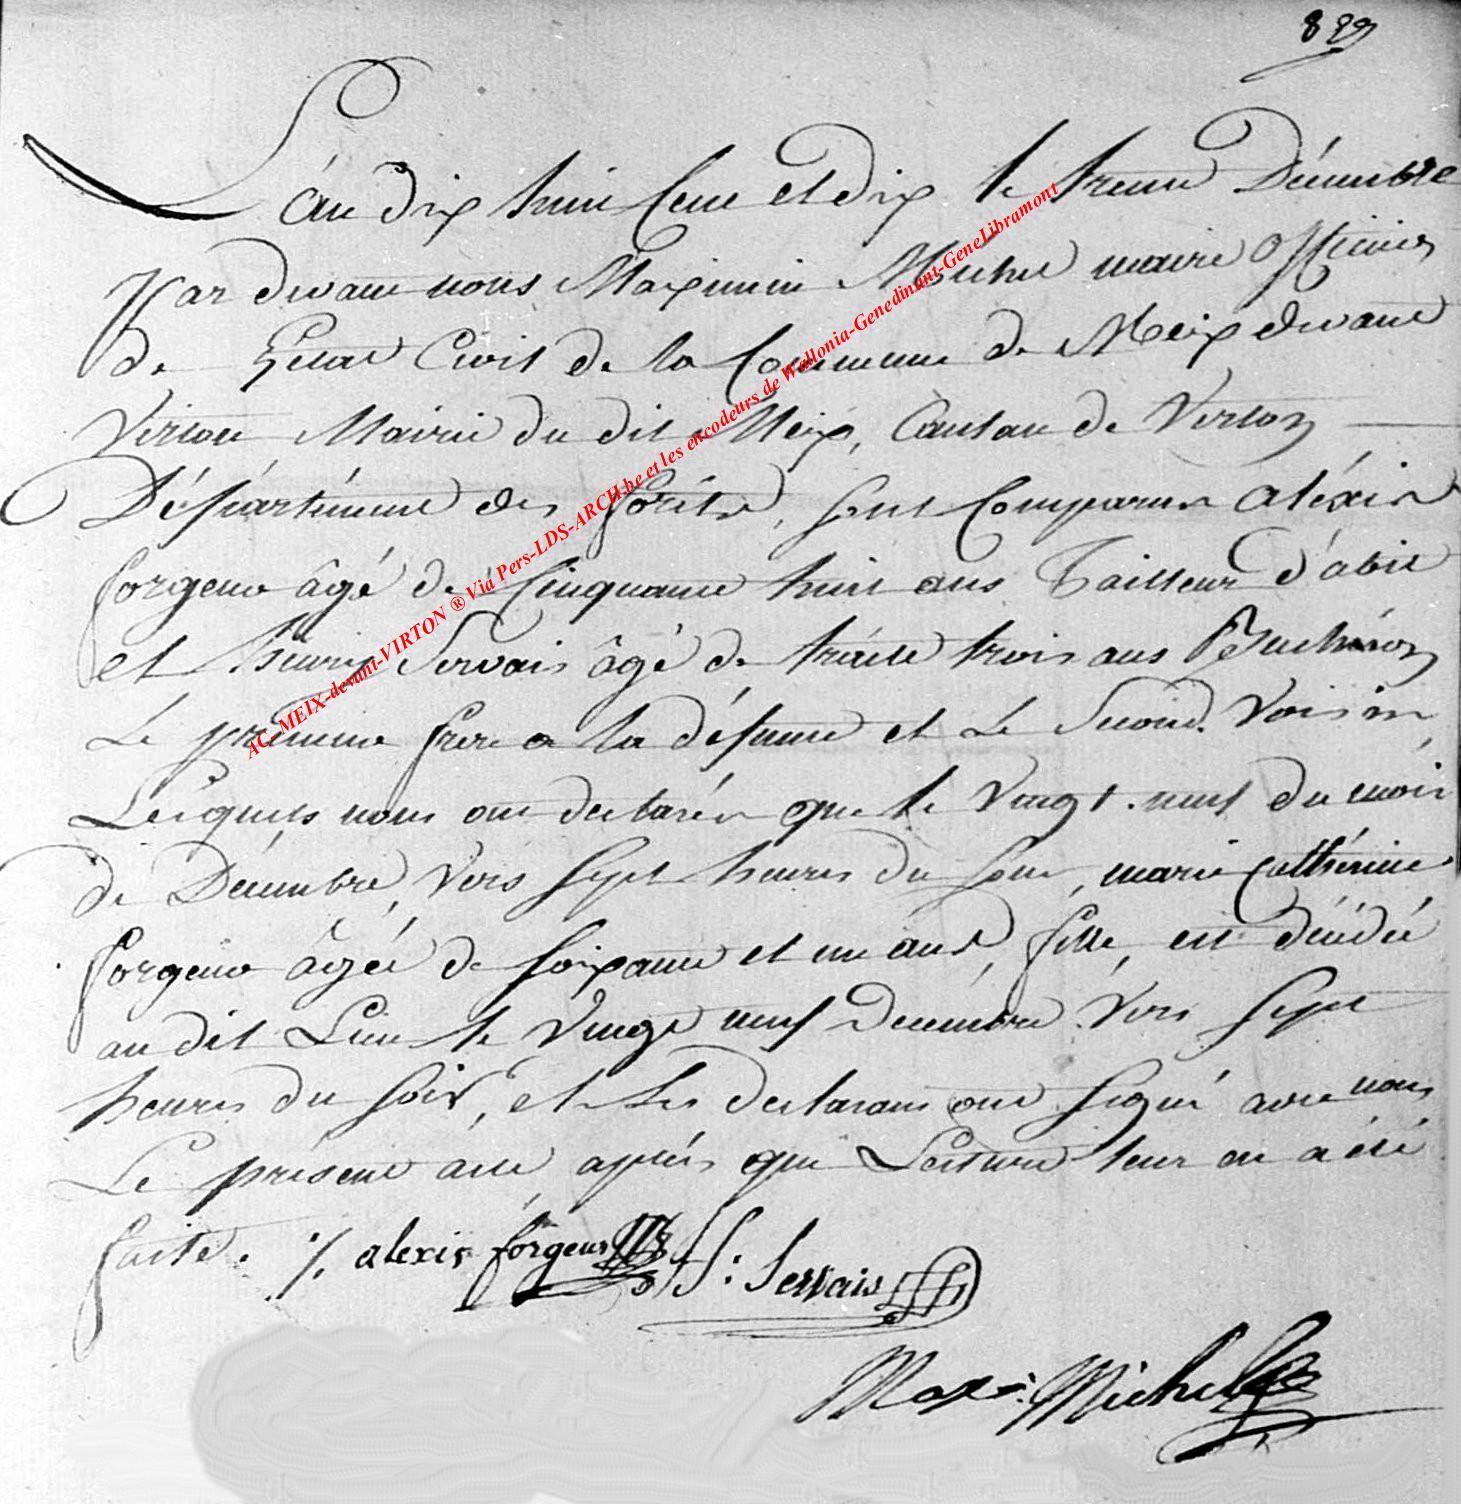 829
L'an dix huit Cent et dix le trente Décembre
Par devant nous Maximin Michel maire officier
de Letat Civil de la Commune de Meix devant
Virton Mairie du dit Meix, Canton de Virton
Département des forêts, sont Comparus aléxis
forgeur âgé de Cinquante huit ans Tailleur d'abit
et henry Servais âgé de trente trois ans Bucheron
Le premier frere a la défunte et Le Second Voisin
Lesquels nous ont declarés que le Vingt neuf du mois
de Décembre, Vers sept heures du soir, marie Catthérine
forgeur âgée de soixante et un ans, fille, est décédée
au dit Lieu le Vingt neuf Decembre Vers sept
heures du soir, et Les declarans ont signé avec nous
Le présent acte après que Lecture leur en a été
faite. alexis forgeur H: Servais
Maxi: Michel
AC-MEIX-devant-VIRTON ® Via Pers-LDS-ARCH.be et les encodeurs de Wallonia-Genedinant-GeneLibramont